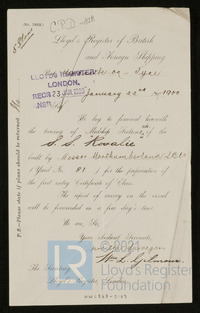 Lloyd's Register of British
and Foreign Shipping
LLOYDS REGISTER,
LONDON.
RECD 23 JAN 1900
January 22nd 1900
We beg to forward herewith
the tracing of Midship Section of the
S.S. Rosalie
built by Messrs Northumberland S.B. Co
(Yard No. 81) for the preparation of
the first entry Certificate of Class.
The report of survey on the vessel
will be forwarded in a few day's time.
We are, Sir,
Your obedient Servants,
W. L. Gilmour
The Secretary,
Lloyd's Register, London.
P.S.—Please state if plans should be returned
©2021
Lloyd's Register
Foundation